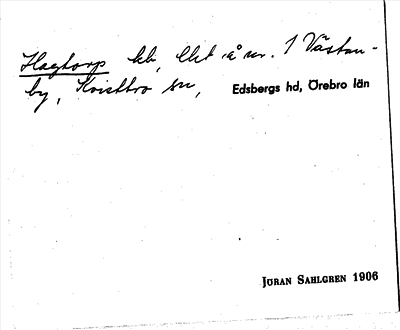 Hagtorp lht, lht å nr. 1 Västan-
by, Kvistbro sn, Edsbergs hd, Örebro län
JÖRAN SAHLGREN 1906